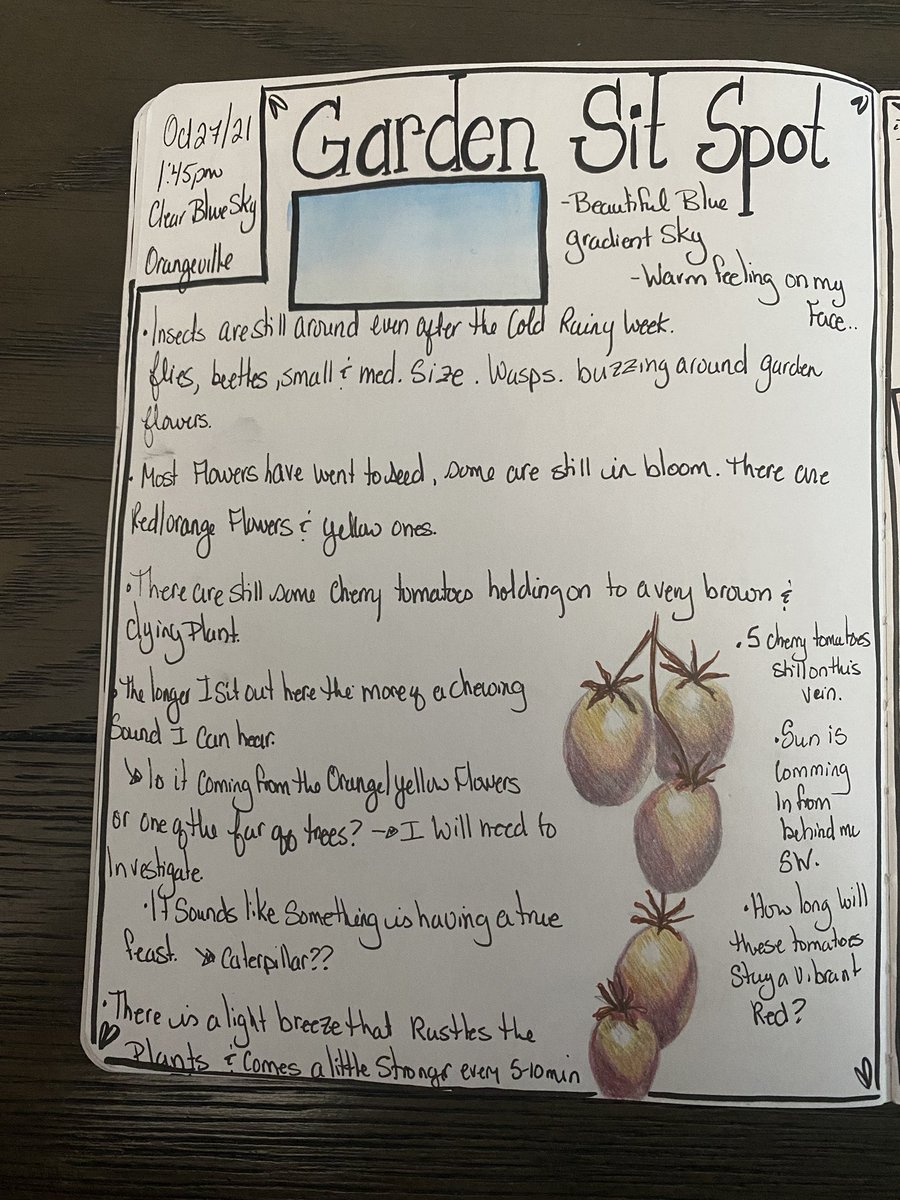 Oct 27/21
1:45pm
Clear Blue Sky
Orangeville
Garden Sit Spot
-Beautiful Blue
gradient Sky
-Warm feeling on my
Face..
• Insects are still around even after the Cold Rainy Week.
flies, beetles, small & med. Size. Wasps. buzzing around garden
flowers.
• Most Flowers have went to seed, some are still in bloom. There are
Red/orange Flowers & yellow ones.
• There are still some Cherry tomatoes holding on to a very brown &
dying Plant.
• The longer I sit out here the more of a chewing
Sound I can hear.
Is it coming from the Orange/yellow Flowers
or one of the far off trees? → I will need to
Investigate.
• It Sounds like Something is having a true
feast. → Caterpillar??
• There is a light breeze that Rustles the
Plants & Comes a little Stronger every 5-10min
• 5 cherry tomatoes
still on this
vein.
• Sun is
Comming
In from
behind me
SW.
• How long will
these tomatoes
Stay a Vibrant
Red?